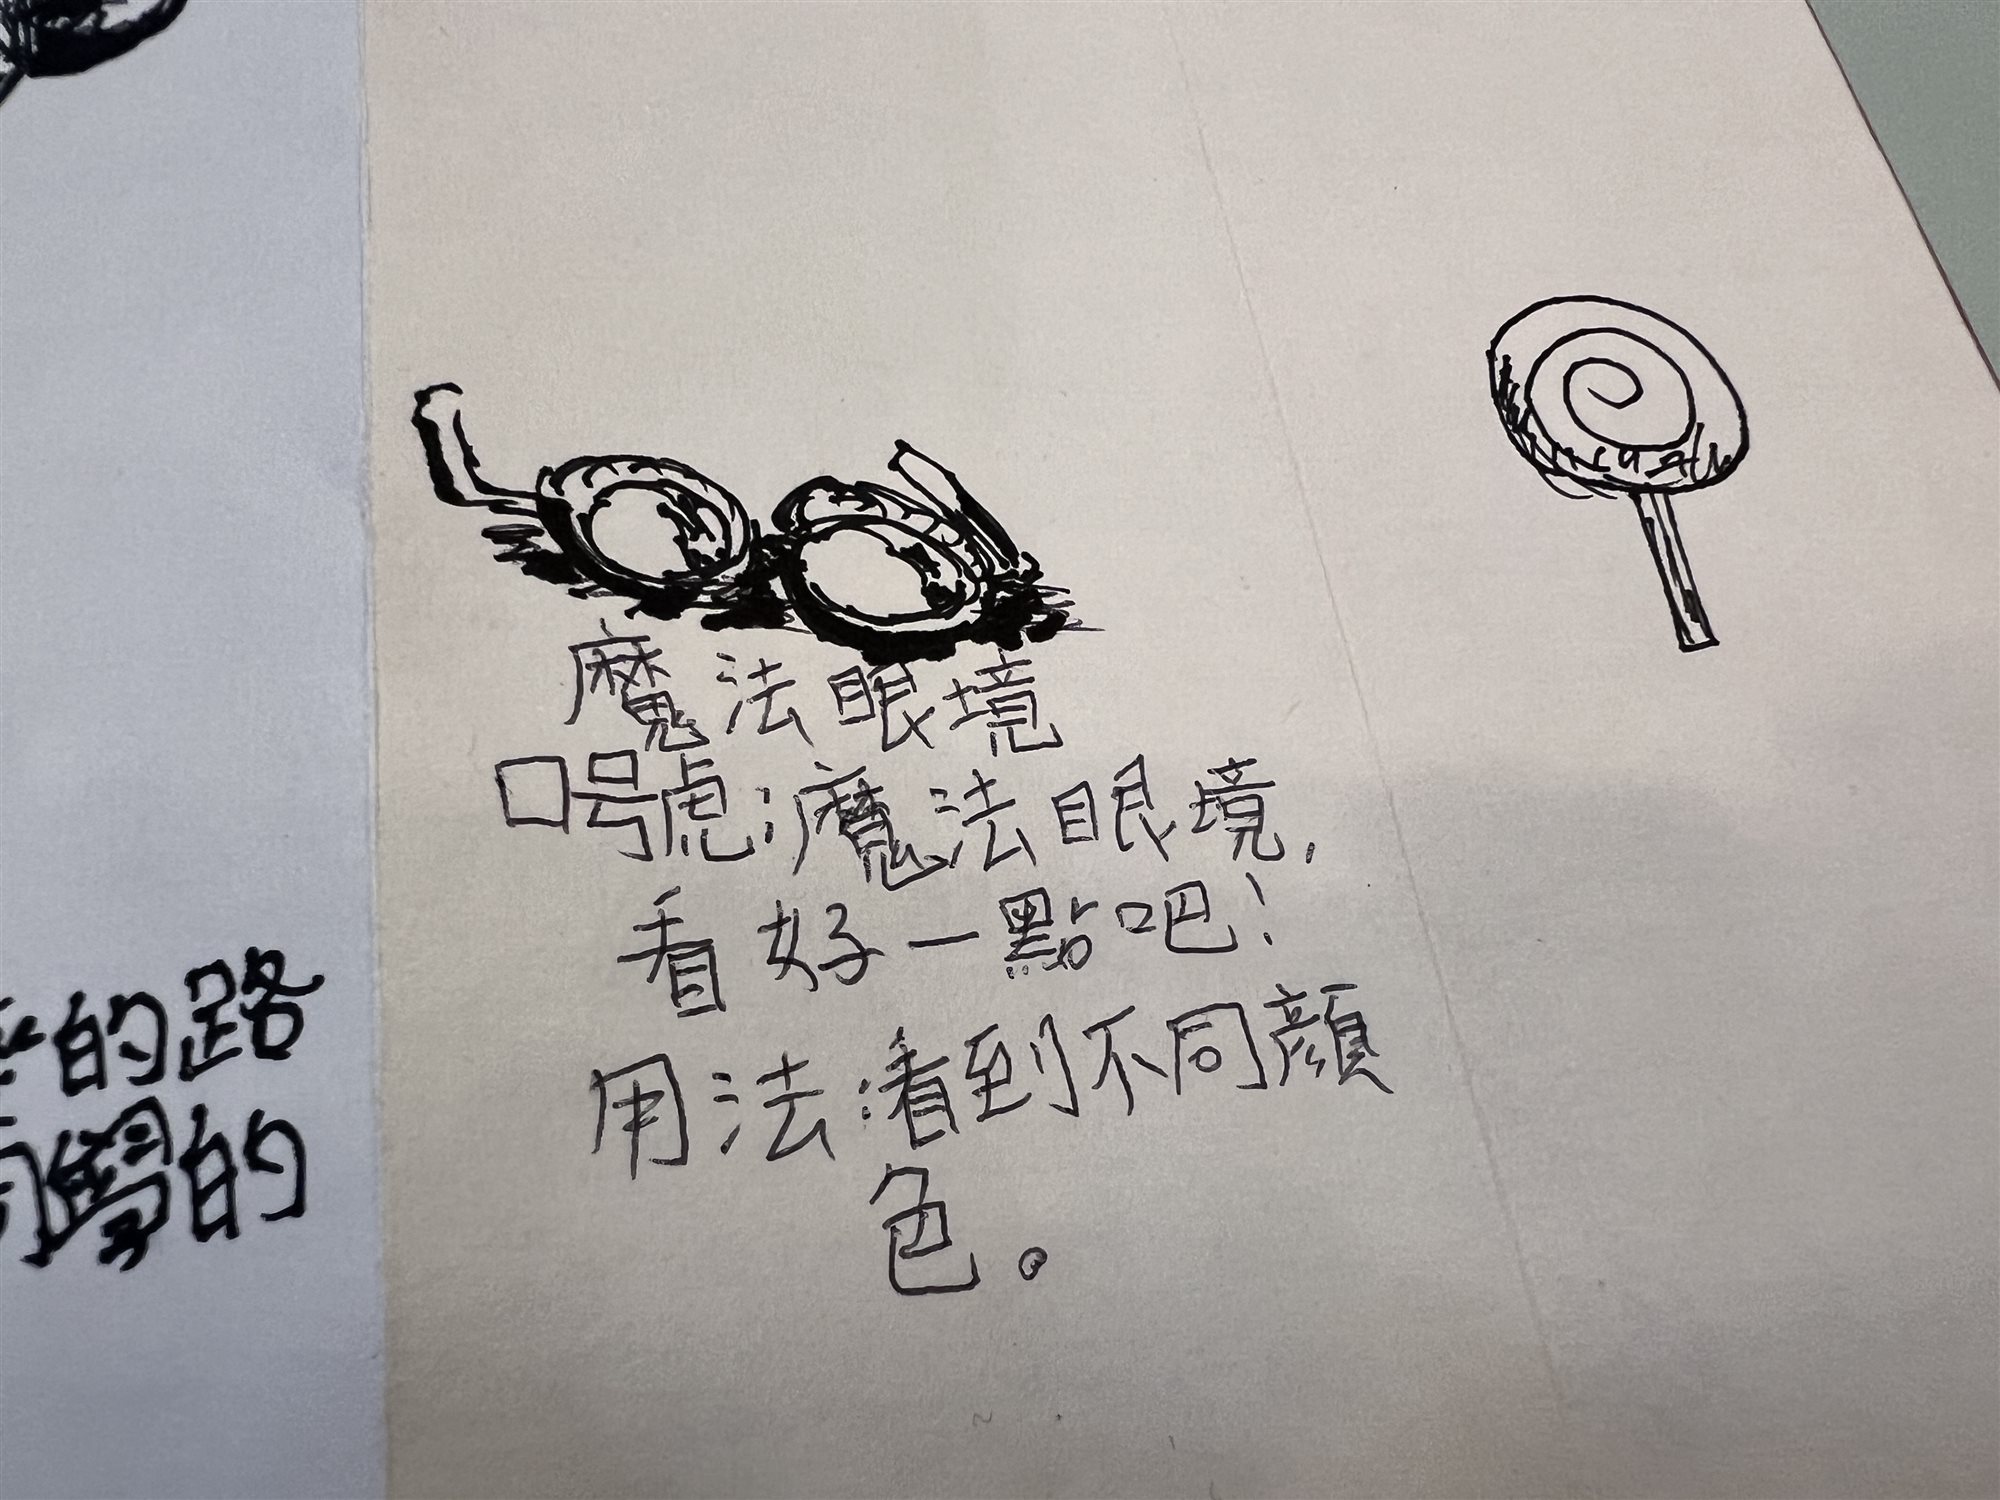 魔法眼境
口號:魔法眼境,
看好一點吧!
用法:看到不同顏
色。
的路
學的